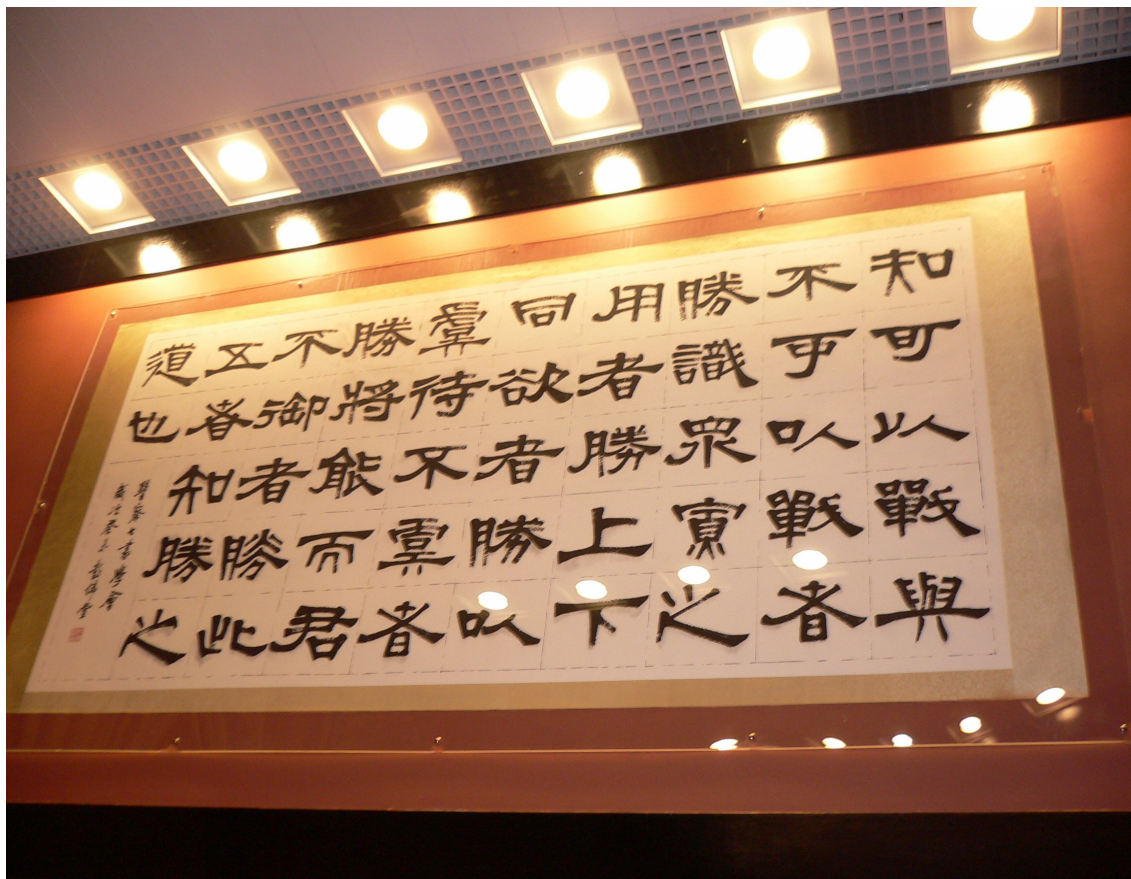 知可以戰與
不可以戰者
勝識眾寡之
用者勝上下
同欲者勝以
虞待不虞者
勝將能而君
不御者勝此
五者知勝之
道也